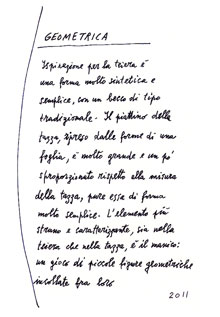 GEOMETRICA
Ispirazione per la teiera è
una forma molto sintetica e
semplice, con un becco di tipo
tradizionale. Il piattino della
tazza ripreso dalle forme di una
foglia, è molto grande e un pò
sproporzionato rispetto alla misura
della tazza, pure essa di forma
molto semplice. L'elemento più
strano e caratterizzante, sia nella
teiera che nella tazza, è il manico:
un gioco di piccole figure geometriche
incollate fra loro
2011